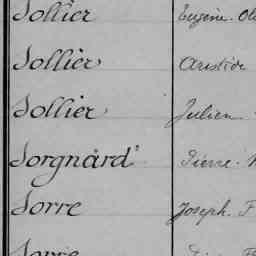 Sollier Eugène
Sollier Aristide
Sollier Julien
Sorgnard Pierre
Sorre Joseph. F